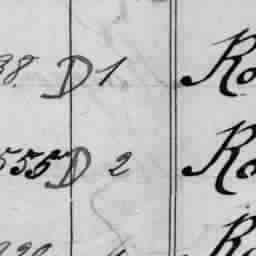 38 D 1 Ro
555 D 2 Ro
Ro